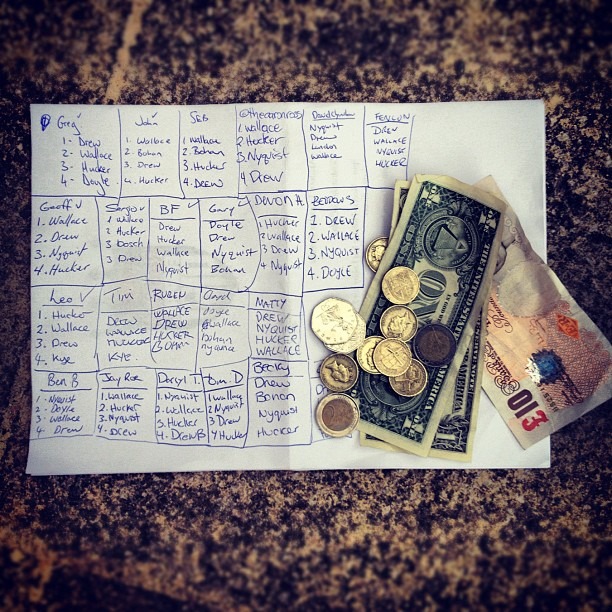 Greg
1- Drew
2- Wallace
3- Hucker
4- Doyle
John
1. Wallace
2. Bohan
3. Drew
4. Hucker
SEB
1 Wallace
2. Bohan
3. Hucker
4. DREW
@theaaronross
1 Wallace
2 Hucker
3. Nyquist
4 Drew
Nyquist
Drew
London
Wallace
FENLON
DREW
WALLACE
NYQUIST
HUCKER
Geoff
1. Wallace
2. Drew
3. Nyquist
4. Hucker
Sergio
1 Wallace
2 Hucker
3 Dosch
3 Drew
BF
Drew
Hucker
Wallace
Nyquist
Gary
Doyle
Drew
Nyquist
Bohan
DEVON H.
1 Hucker
2 Wallace
3 Drew
4 Nyquist
BEDDOWS
1. DREW
2. WALLACE
3. NYQUIST
4. DOYLE
Leo
1. Hucker
2. Wallace
3. Drew
4. Kye
Tim
DREW
WALLACE
HUCKER
KYE.
RUBEN
WALLACE
DREW
HUCKER
BOHAN
David
doyle
wallace
bohan
MATTY
DREW
NYQUIST
HUCKER
WALLACE
Ben B
1 - NYQUIST
2 - Doyle
3 - Wallace
4. Drew
Jay Roe
1. Wallace
2. Hucker
3. Nyquist
4. Drew
Deryl T.
1. Nyquist
2. Wallace
3. Hucker
4. DREW B
Tom. D
1 Wallace
2 Nyquist
3 Drew
4 Hucker
Becky
Drew
Bohan
Nyquist
Hucker
D
ONE
1
£10